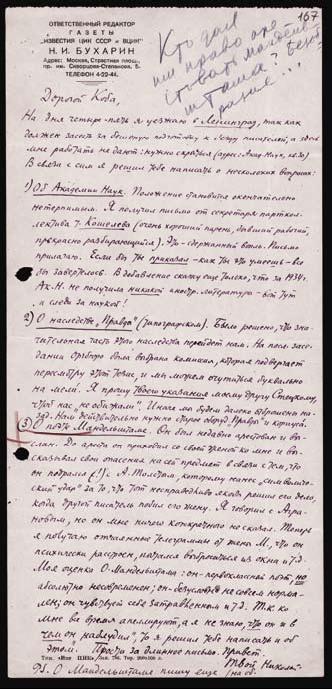 167
ОТВЕТСТВЕННЫЙ РЕДАКТОР
ГАЗЕТЫ
„ИЗВЕСТИЯ ЦИК СССР и ВЦИК“
Н. И. БУХАРИН
Адрес: Москва, Страстная площ.,
пр. им. Скворцова-Степанова, 5.
ТЕЛЕФОН 4-22-44.
Кто дал
им право аре
стовать Мандельш
штама? Безо
разие...
Дорогой Коба,
На дня четыре-пять я уезжаю в Ленинград, так как
должен засесть за бешеную подготовку к съезду писателей, а здесь
мне работать не дают: нужно скрыться (адрес: Акад. Наук, кв. 30)
В связи с сим я решил тебе написать о нескольких вопросах:
1) Об Академии Наук. Положение становится окончательно
нетерпимым. Я получил письмо от секретаря парткол-
лектива т. Кошелева (очень хороший парень, бывший рабочий,
прекрасно разбирающийся). Это - сдержанный вопль. Письмо
прилагаю. Если бы ты приказал - как ты это умеешь - все
бы завертелось. В добавление скажу еще только, что за 1934 г.
Ак. Н. не получила никакой иностр. литературы - вот тут
и следи за наукой!
2) О наследстве „Правды“ (типографском). Было решено, что зна-
чительная часть этого наследства перейдет нам. На посл. засе-
дании Оргбюро была выбрана комиссия, которая подвергает
пересмотру этот тезис, и мы можем очутиться буквально
на мели. Я прошу твоего указания моему другу Стецкому,
чтоб нас не обижали. Иначе мы будем далеко отброшены на-
зад. Нам действительно нужно старое оборуд. Правды и корпуса.
3) О поэте Мандельштаме. Он был недавно арестован и вы-
слан. До ареста он приходил со своей женой ко мне и вы-
сказывал свои опасения на сей предмет в связи с тем, что
он подрался (!) с А. Толстым, которому нанес „символич-
еский удар“ за то, что тот несправедливо якобы решил его дело,
когда другой писатель побил его жену. Я говорил с Агра-
новым, но он мне ничего конкретного не сказал. Теперь
я получаю отчаянные телеграммы от жены М., что он
психически расстроен, пытался выброситься из окна и т.д.
Моя оценка О. Мандельштама: он - первоклассный поэт, но
абсолютно несовременен; он - безусловно не совсем норма-
лен; он чувствует себя затравленным и т.д. Т.к. ко
мне все время апеллируют, а я не знаю, что он и в
чем он „наблудил“, то я решил тебе написать и об
этом. Прости за длинное письмо. Привет.
Твой Николай
P.S. О Мандельштаме пишу еще
(на об.